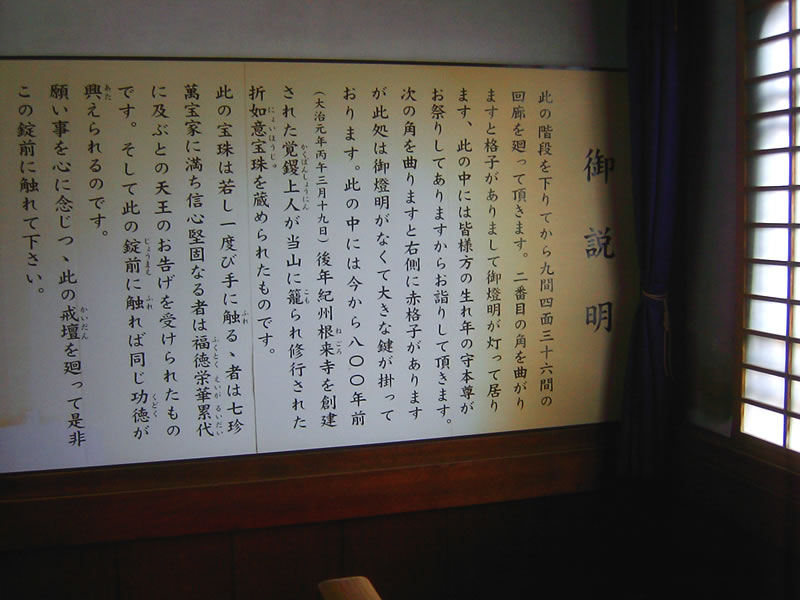 御説明
此の階段を下りてから九間四面三十六間の
回廊を廻って頂きます。二番目の角を曲がり
ますと格子がありまして御燈明が灯って居り
ます、此の中には皆様方の生れ年の守本尊が
お祭りしてありますからお詣りして頂きます。
次の角を曲りますと右側に赤格子があります
が此処は御燈明がなくて大きな鍵が掛って
おります。此の中には今から八〇〇年前
(大治元年丙午三月十九日)後年紀州根来寺を創建
された覚鑁上人が当山に籠られ修行された
折如意宝珠を蔵められたものです。
此の宝珠は若し一度び手に触るゝ者は七珍
萬宝家に満ち信心堅固なる者は福徳栄華累代
に及ぶとの天王のお告げを受けられたもの
です。そして此の錠前に触れば同じ功徳が
興えられるのです。
願い事を心に念じつゝ此の戒壇を廻って是非
この錠前に触れて下さい。